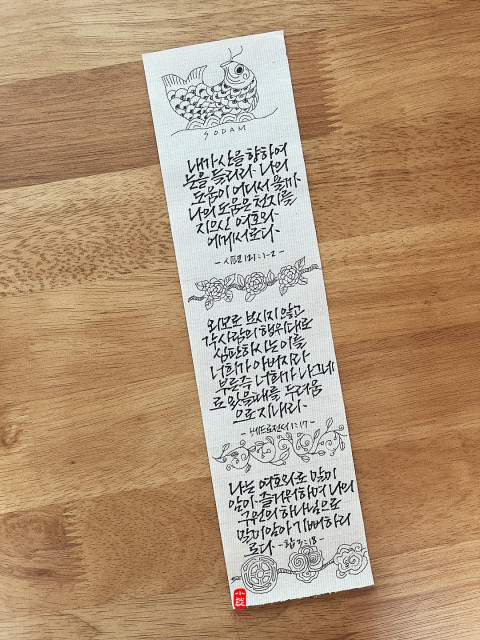 SODAM
내가 산을 향하여
눈을 들리라. 나의
도움이 어디서 올까.
나의 도움은 천지를
지으신 여호와.
에게서로다.
- 시편 121:1-2 -
외모로 보시지 않고
각 사람의 행위대로
심판하시는 이를
너희가 아버지라
부른즉 너희가 나그네
로 있을때를 두려움
으로 지내라.
- 베드로전서 1:17 -
나는 여호와로 말미
암아. 즐거워하며 나의
구원의 하나님으로
말미암아 기뻐하리
로다. - 합 3:18 -